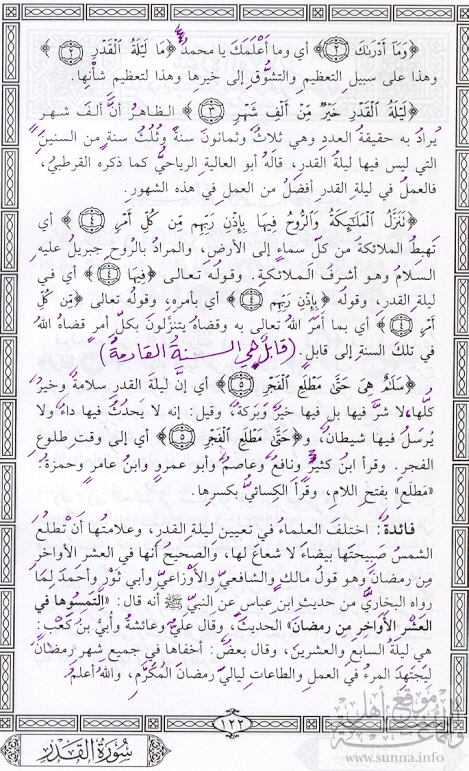 ﴿وَمَا أَدْرَىٰكَ ﴿٢﴾﴾ أي وما أَعْلَمَكَ يا محمدُ ﴿مَا لَيْلَةُ الْقَدْرِ ﴿٢﴾﴾
وهذا على سبيلِ التعظيمِ والتشوُّقِ إلى خيرِها وهذا لتعظيم شأنِها.
﴿لَيْلَةُ الْقَدْرِ خَيْرٌ مِّنْ أَلْفِ شَهْرٍ ﴿٣﴾﴾ الظاهرُ أنَّ ألفَ شهرٍ
يُرادُ به حقيقةُ العددِ وهي ثلاثٌ وثمانونَ سنةً وثُلُثُ سنةٍ من السنينَ
التي ليس فيها ليلةُ القدرِ، قالَهُ أبو العاليةِ الرياحيُّ كما ذكرَهُ القرطبيُّ،
فالعملُ في ليلةِ القدرِ أفضلُ من العملِ في هذه الشهور.
﴿نَنَزَّلُ الْمَلَٰٓئِكَةُ وَالرُّوحُ فِيهَا بِإِذْنِ رَبِّهِم مِّن كُلِّ أَمْرٍ ﴿٤﴾﴾ أي
تهبطُ الملائكةُ من كلّ سماءٍ إلى الأرضِ، والمرادُ بالروحِ جبريلُ عليه
السلامُ وهو أشرفُ الملائكةِ. وقولُه تعالى ﴿فِيهَا ﴿٤﴾﴾ أي في
ليلةِ القدرِ، وقولُه ﴿بِإِذْنِ رَبِّهِم ﴿٤﴾﴾ أي بأمرِه، وقولُه تعالى ﴿مِّن كُلِّ
أَمْرٍ ﴿٤﴾﴾ أي بما أمَرَ اللهُ تعالى به وقضاهُ يتنزَّلونَ بكلّ أمرٍ قضاهُ اللهُ
في تلكَ السنةِ إلى قابلٍ. (قابل هي السنة القادمة)
﴿سَلَٰمٌ هِيَ حَتَّىٰ مَطْلَعِ الْفَجْرِ ﴿٥﴾﴾ أي إنَّ ليلةَ القدرِ سلامةٌ وخيرٌ
كلُّها، لا شرَّ فيها بل فيها خيرٌ وبركةٌ، وقيل: إنه لا يَحدُثُ فيها داءٌ ولا
يُرسَلُ فيها شيطانٌ، و﴿حَتَّىٰ مَطْلَعِ الْفَجْرِ ﴿٥﴾﴾ أي إلى وقتِ طلوعِ
الفجرِ. وقرأ ابنُ كثيرٍ ونافعٌ وعاصمٌ وأبو عمرٍو وابنُ عامرٍ وحمزةُ:
«مَطلَع» بفتحِ اللامِ، وقرأ الكِسائيُّ بكسرِها.
فائدةٌ: اختلفَ العلماءُ في تعيينِ ليلةِ القدرِ، وعلامتُها أن تَطلُعَ
الشمسُ صَبيحتَها بيضاءَ لا شعاعَ لها، والصحيحُ أنها في العشرِ الأواخرِ
مِن رمضانَ وهو قولُ مالكٍ والشافعيِّ والأوزاعيِّ وأبي ثَوْرٍ وأحمدَ لِمَا
رواه البخاريُّ من حديثِ ابنِ عباسٍ عن النبيِّ ﷺ أنه قال: «التَمسُوها في
العشْرِ الأواخرِ مِن رمضانَ» الحديثَ، وقال عليٌّ وعائشةُ وأُبيُّ بنُ كَعْبٍ:
هي ليلةُ السابعِ والعشرينَ، وقال بعضٌ: أخفاها في جميعِ شهرِ رمضانَ
ليَجتهدَ المرءُ في العملِ والطاعاتِ لياليَ رمضانَ المُكرَّمِ، واللهُ أعلمُ
١٢٢
سُورَةُ الْقَدْرِ
موقع أهل السنة والجماعة
www.sunna.info